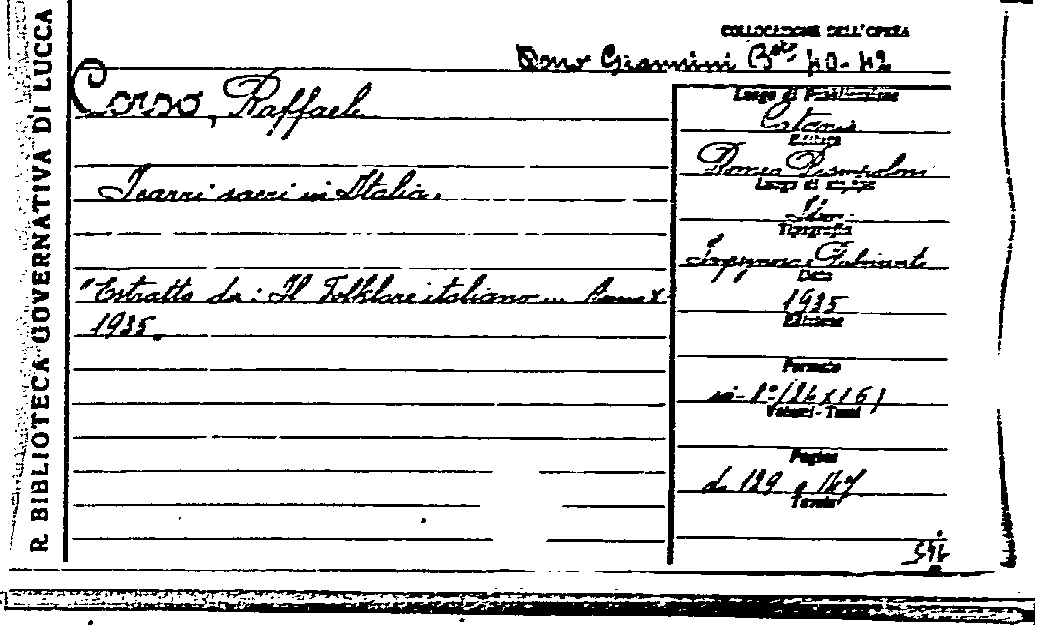 R. BIBLIOTECA GOVERNATIVA DI LUCCA
COLLOCAZIONE DELL'OPERA
Dono Giannini B.ta 40-42
Corso, Raffaele
I carri sacri in Italia.
"Estratto da: Il Folklore italiano ... Anno X
1935.
Luogo di Pubblicazione
Catania
Editore
Romeo Prampolini
Luogo di stampa
Idem
Tipografia
Data
1935
Edizione
Formato
in-8°/(26x16)
Volumi - Tomi
Pagine
da 129 a 147
Tavole